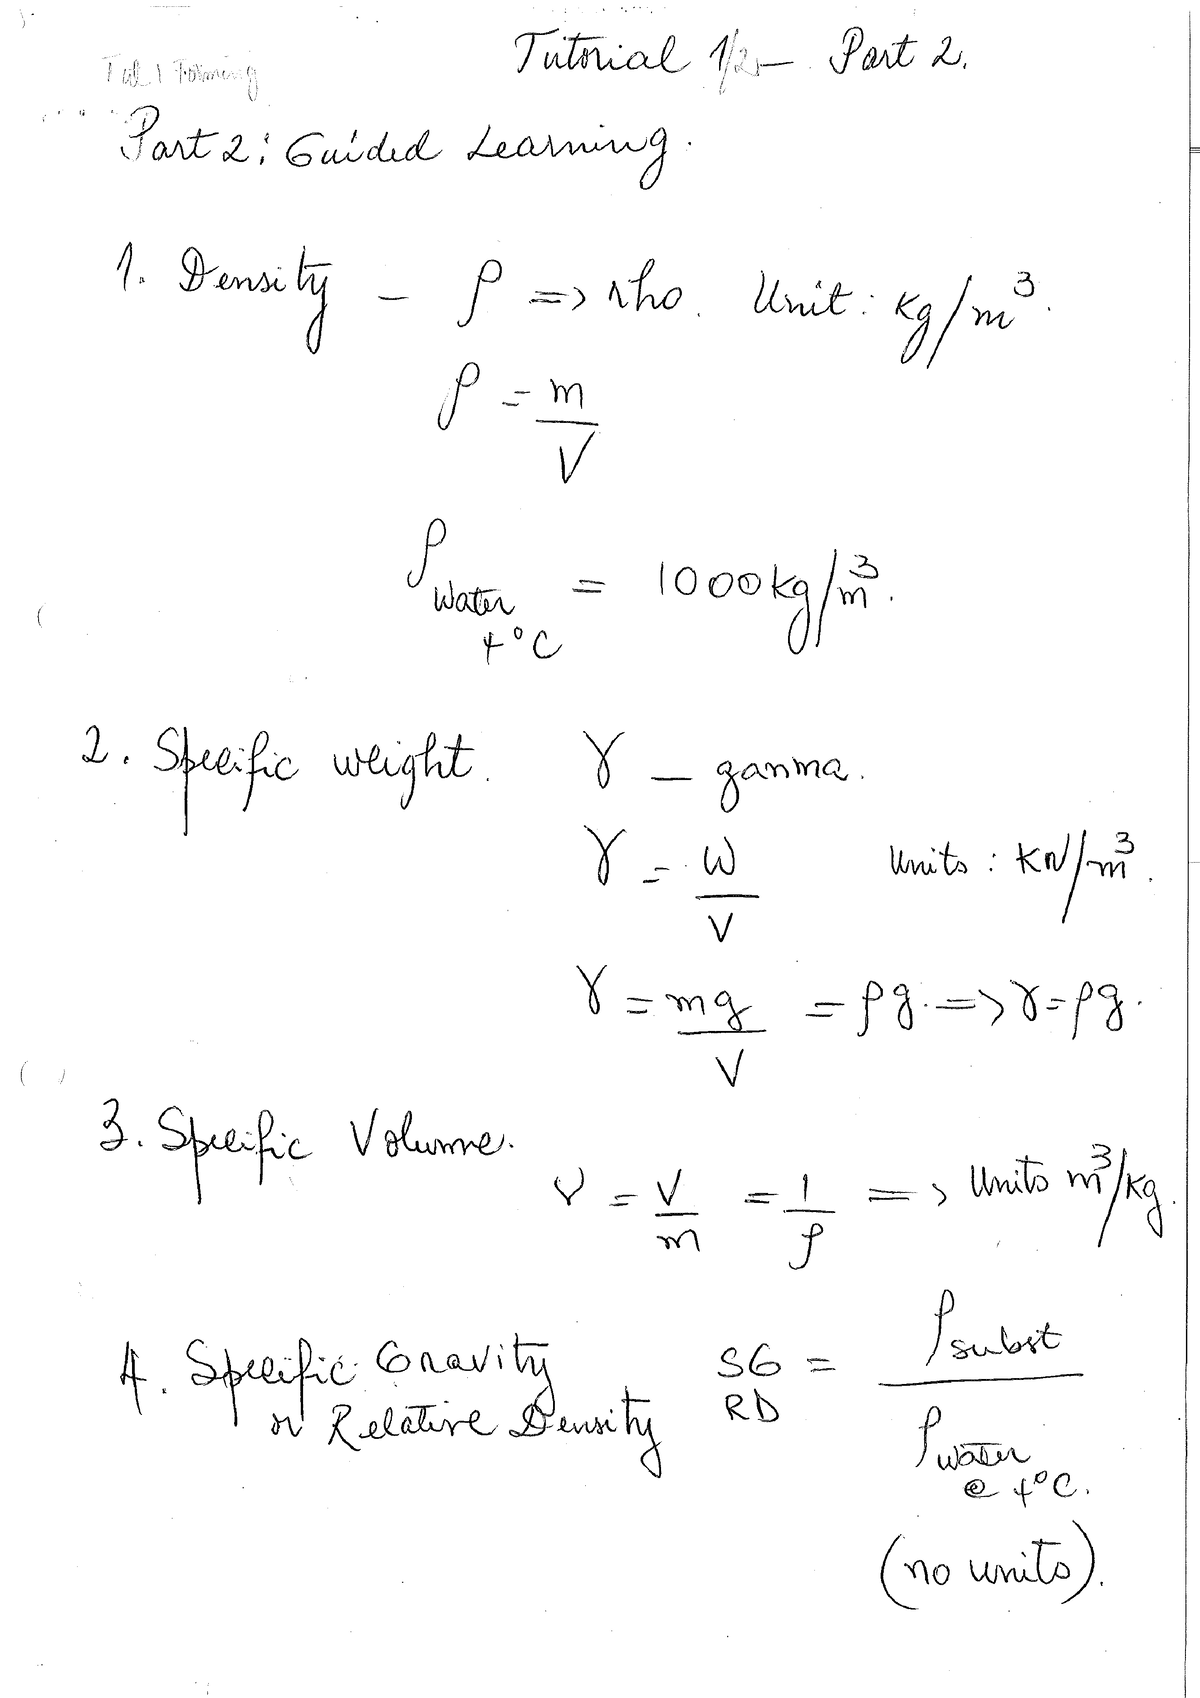 Tutorial 1/2 - Part 2.
Tut 1 Forming
Part 2: Guided Learning.
1. Density - ρ => rho. Unit: kg/m³.
ρ = m/V
ρ water 4°C = 1000kg/m³.
2. Specific weight. γ - gamma.
γ = W/V Units: KN/m³.
γ = mg/V = ρg. => γ = ρg.
3. Specific Volume.
ν = V/m = 1/ρ => Units m³/kg.
4. Specific Gravity SG = ρsubst
or Relative Density RD
ρwater
@ 4°C.
(no units).